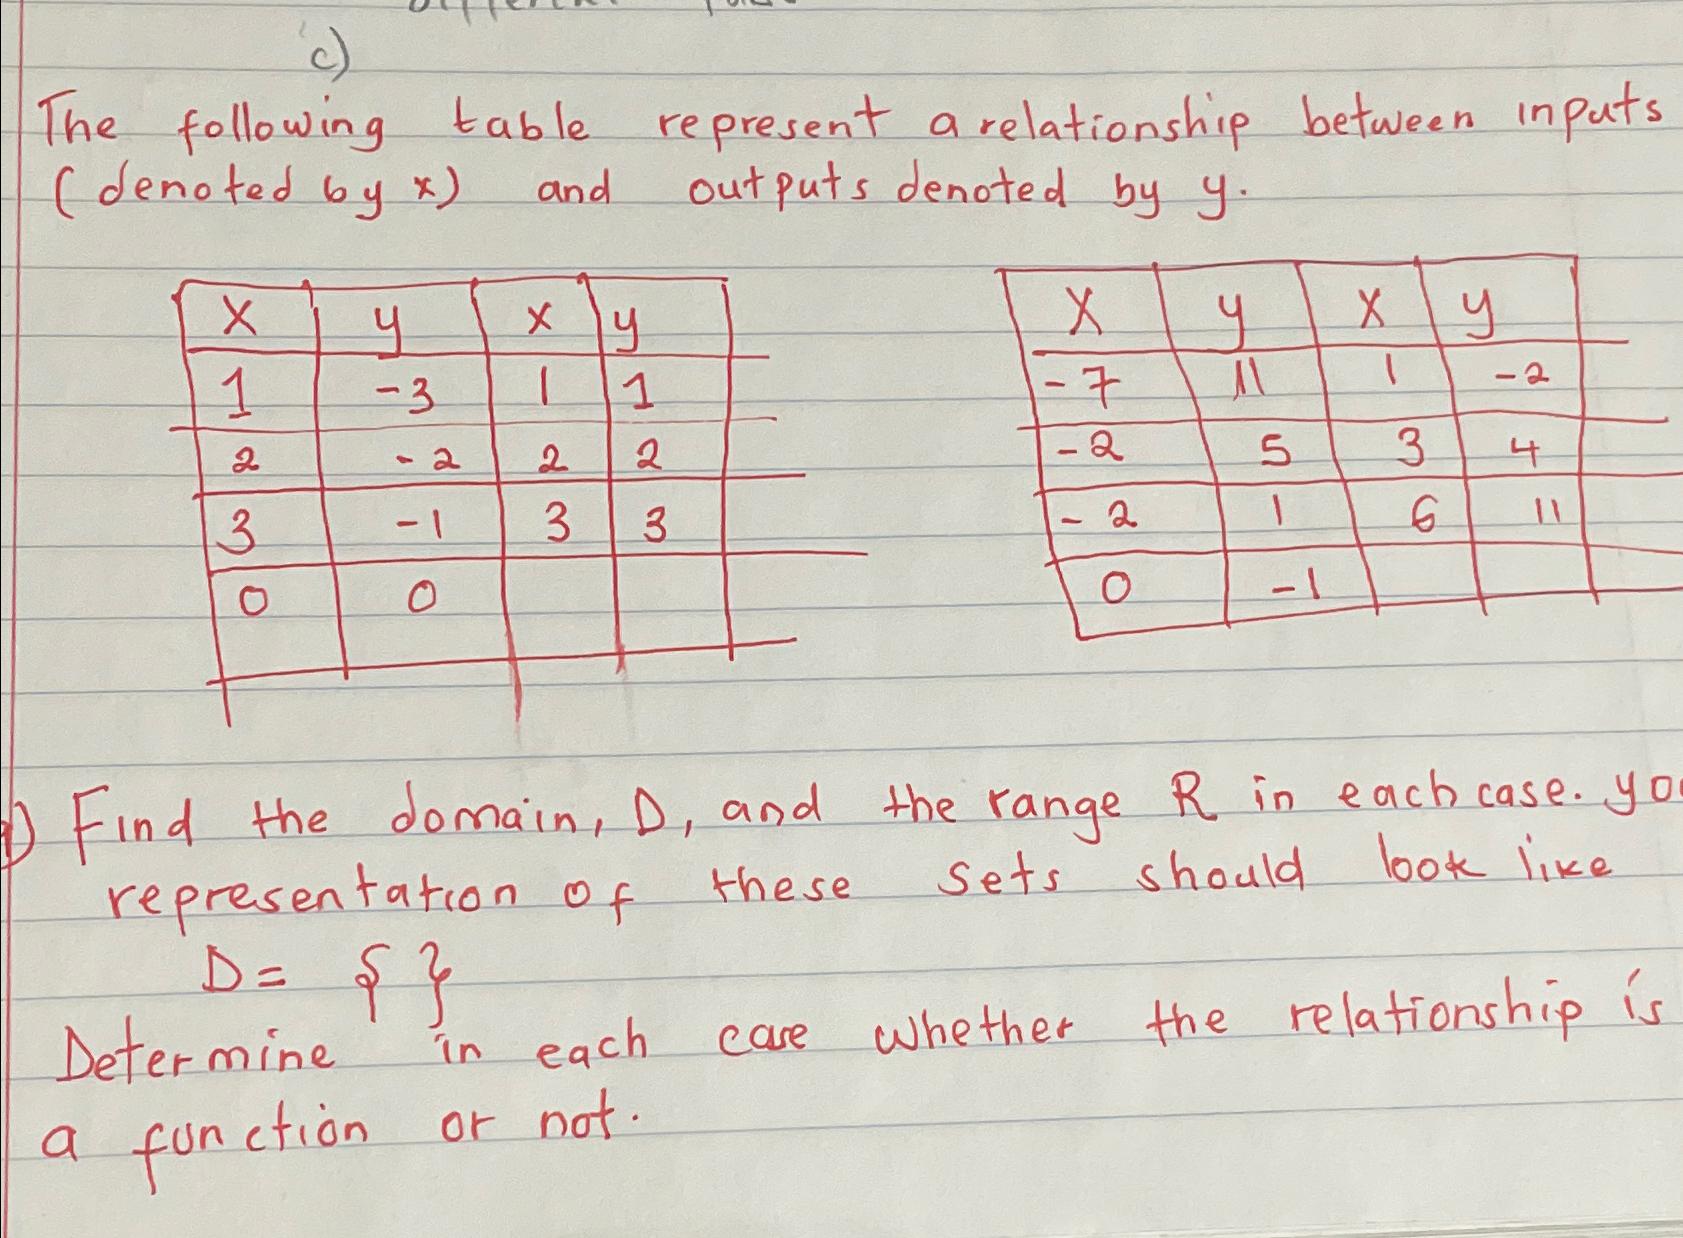 c)
The following table represent a relationship between inputs
(denoted by x) and outputs denoted by y.
x y x y
1 -3 1 1
2 -2 2 2
3 -1 3 3
0 0
x y x y
-7 11 1 -2
-2 5 3 4
-2 1 6 11
0 -1
Find the domain, D, and the range R in each case. you
representation of these sets should look like
D= { }
Determine in each case whether the relationship is
a function or not.